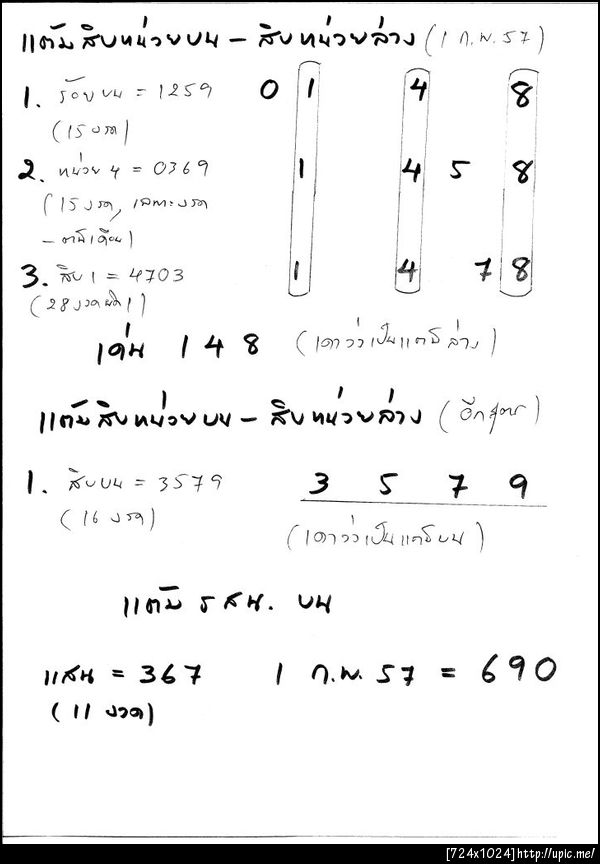 แต้มสิบหน่วยบน - สิบหน่วยล่าง (1 ก.พ. 57)
1. ร้อยบน = 1259 0 1 4 8
(15 งวด)
2. หน่วย 4 = 0369 1 4 5 8
(15 งวด, เฉพาะงวด
- ต้นเดือน)
3. สิบ 1 = 4703 1 4 7 8
(28 งวดผิด 1)
เด่น 1 4 8 (เดาว่าเป็นแต้มล่าง)
แต้มสิบหน่วยบน - สิบหน่วยล่าง (อีกสูตร)
1. สิบบน = 3579 3 5 7 9
(16 งวด)
(เดาว่าเป็นแต้มบน)
แต้ม รสน. บน
แสน = 367 1 ก.พ. 57 = 690
(11 งวด)
[724x1024]http://upic.me/